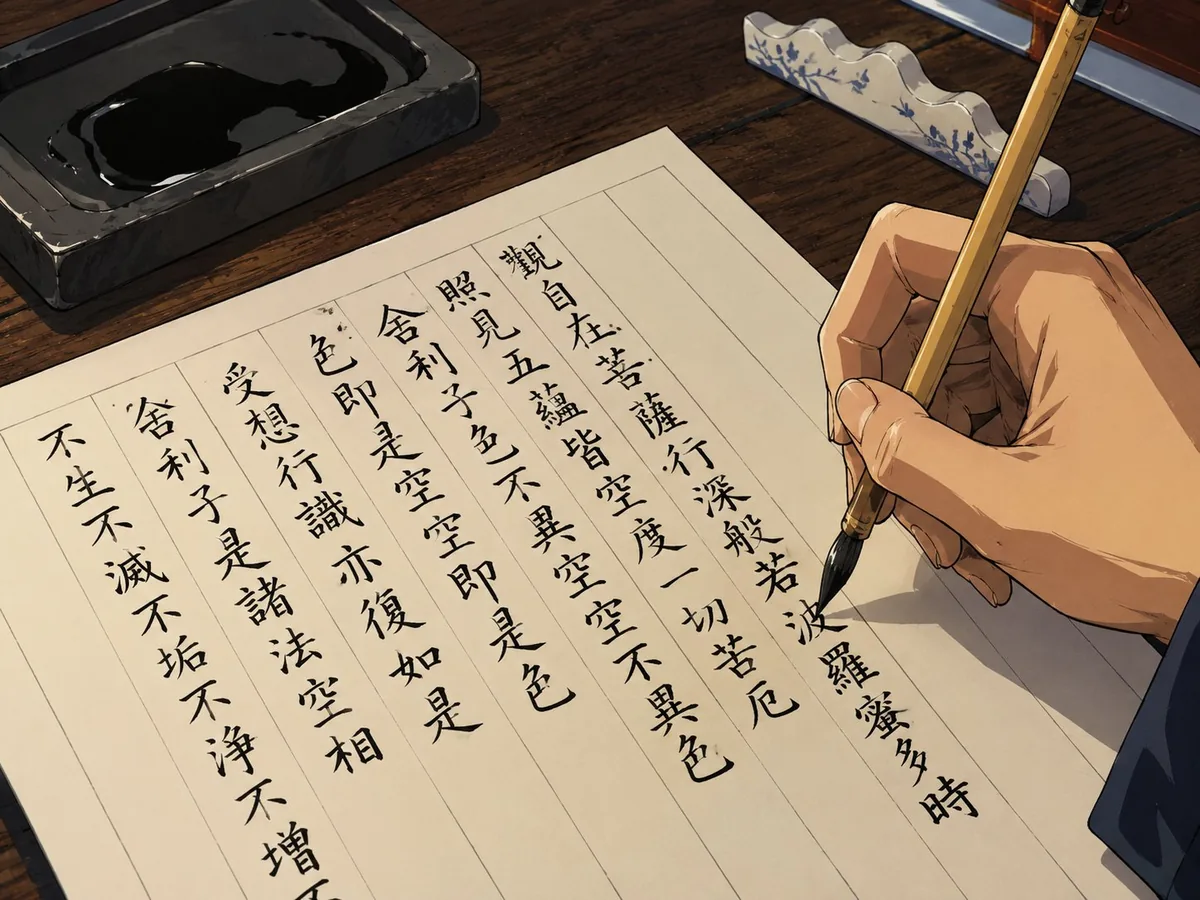 觀自在菩薩行深般若波羅蜜多時
照見五蘊皆空度一切苦厄
舍利子色不異空空不異色
色即是空空即是色
受想行識亦復如是
舍利子是諸法空相
不生不滅不垢不浄不増不